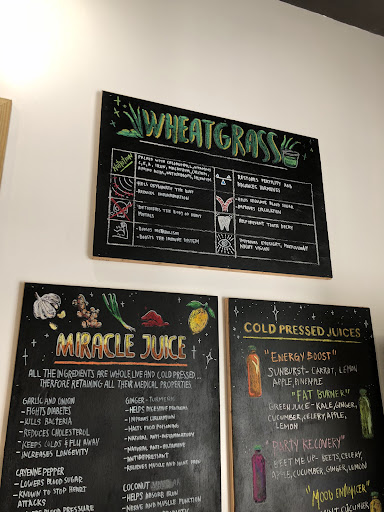 WHEATGRASS
PACKED WITH CHLOROPHYLL, VITAMINS
AMINO ACIDS, ANTIOXIDANTS, ENZYMES
REDUCES INFLAMMATION
DETOXIFIES THE BODY OF HEAVY
METALS
- BOOSTS METABOLISM
- BOOSTS THE IMMUNE SYSTEM
RESTORES FERTILITY AND
BALANCES HORMONES
- IMPROVES CIRCULATION
TOOTH DECAY
IMPROVES EYESIGHT, PARTICULARLY
NIGHT VISION
MIRACLE JUICE
ALL THE INGREDIENTS ARE WHOLE LIVE AND COLD PRESSED...
THERFORE RETAINING ALL THEIR MEDICAL PROPERTIES
GARLIC AND ONION
- FIGHTS DIABETES
- KILLS BACTERIA
- REDUCES CHOLESTEROL
- KEEPS COLDS & FLU AWAY
- INCREASES LONGEVITY
CAYENNE PEPPER
- LOWERS BLOOD SUGAR
- KNOWN TO STOP HEART
ATTACKS
BLOOD PRESSURE
GINGER - TURMERIC
- HELPS DIGESTIVE PROBLEMS
- IMPROVES CIRCULATION
- HALTS FOOD POISONING
- NATURAL ANTI-INFLAMMATORY
- NATURAL ANTI-
- ANTIDEPRESSANT
- RELIEVES MUSCLE AND JOINT PAIN
COCONUT
- HELPS ABSORB IRON
- NERVE AND MUSCLE FUNCTION
COLD PRESSED JUICES
"ENERGY BOOST"
SUNBURST - CARROT, LEMON
APPLE, PINEAPPLE
"FAT BURNER"
GREEN JUICE - KALE, GINGER,
CUCUMBER, CELERY, APPLE,
LEMON
"PARTY RECOVERY"
BEET ME UP - BEETS, CELERY,
APPLE, CUCUMBER, GINGER, LEMON
"MOOD ENHANCER"
MINT, CUCUMBER